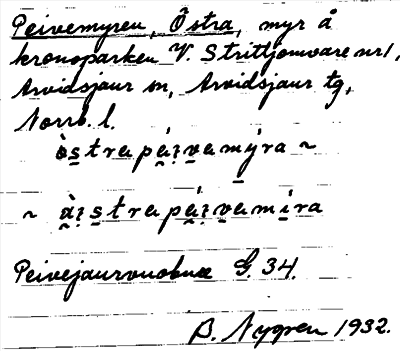 Peivemyren, Östra, myr å
kronoparken V. Strittjomvare nr 1,
Arvidsjaur sn, Arvidsjaur tg,
Norrb. l.
òs̠trapá̯i̯va̠mýra ~
~ à̯i̯s̠trapá̯i̯va̠míra
Peivejaurvuobme G. 34.
B. Nygren 1932.